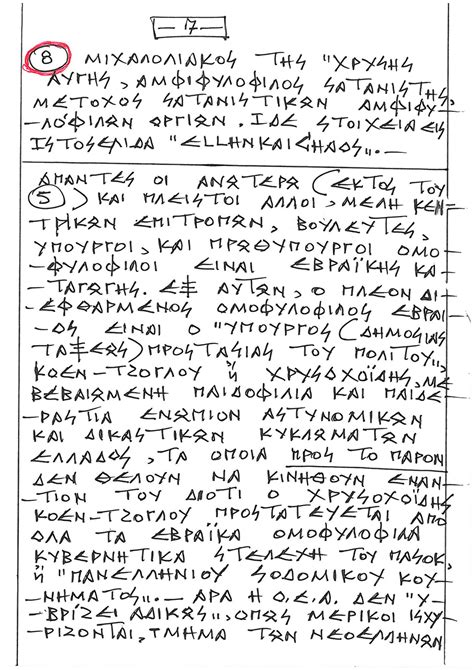 — 17 —
8 ΜΙΧΑΛΟΛΙΑΚΟΣ ΤΗΣ "ΧΡΥΣΗΣ
ΑΥΓΗΣ, ΑΜΦΙΦΥΛΟΦΙΛΟΣ ΣΑΤΑΝΙΣΤΗΣ,
ΜΕΤΟΧΟΣ ΣΑΤΑΝΙΣΤΙΚΩΝ ΑΜΦΙΦΥ-
-ΛΟΦΙΛΩΝ ΟΡΓΙΩΝ. ΙΔΕ ΣΤΟΙΧΕΙΑ ΕΙΣ
ΙΣΤΟΣΕΛΙΔΑ "ELLHNKAICHAOS„.—
ΑΠΑΝΤΕΣ ΟΙ ΑΝΩΤΕΡΩ (ΕΚΤΟΣ ΤΟΥ
5) ΚΑΙ ΠΛΕΙΣΤΟΙ ΑΛΛΟΙ, ΜΕΛΗ ΚΕΝ-
ΤΡΙΚΩΝ ΕΠΙΤΡΟΠΩΝ, ΒΟΥΛΕΥΤΕΣ,
ΥΠΟΥΡΓΟΙ, ΚΑΙ ΠΡΩΘΥΠΟΥΡΓΟΙ ΟΜΟ-
-ΦΥΛΟΦΙΛΟΙ ΕΙΝΑΙ ΕΒΡΑΪΚΗΣ ΚΑ-
-ΤΑΓΩΓΗΣ. ΕΞ ΑΥΤΩΝ, Ο ΠΛΕΟΝ ΔΙ-
ΕΦΘΑΡΜΕΝΟΣ ΟΜΟΦΥΛΟΦΙΛΟΣ ΕΒΡΑΙ-
-ΟΣ ΕΙΝΑΙ Ο "ΥΠΟΥΡΓΟΣ (ΔΗΜΟΣΙΑΣ
ΤΑΞΕΩΣ) ΠΡΟΣΤΑΣΙΑΣ ΤΟΥ ΠΟΛΙΤΟΥ„,
ΚΟΕΝ-ΤΖΟΓΛΟΥ Ή ΧΡΥΣΟΧΟΪΔΗΣ, ΜΕ
ΒΕΒΑΙΩΜΕΝΗ ΠΑΙΔΟΦΙΛΙΑ ΚΑΙ ΠΑΙΔΕ-
-ΡΑΣΤΙΑ ΕΝΩΠΙΟΝ ΑΣΤΥΝΟΜΙΚΩΝ
ΚΑΙ ΔΙΚΑΣΤΙΚΩΝ ΚΥΚΛΩΜΑΤΩΝ
ΕΛΛΑΔΟΣ, ΤΑ ΟΠΟΙΑ ΠΡΟΣ ΤΟ ΠΑΡΟΝ
ΔΕΝ ΘΕΛΟΥΝ ΝΑ ΚΙΝΗΘΟΥΝ ΕΝΑΝ-
-ΤΙΟΝ ΤΟΥ ΔΙΟΤΙ Ο ΧΡΥΣΟΧΟΪΔΗΣ
ΚΟΕΝ-ΤΖΟΓΛΟΥ ΠΡΟΣΤΑΤΕΥΕΤΑΙ ΑΠΟ
ΟΛΑ ΤΑ ΕΒΡΑΪΚΑ ΟΜΟΦΥΛΟΦΙΛΑ
ΚΥΒΕΡΝΗΤΙΚΑ ΣΤΕΛΕΧΗ ΤΟΥ ΠΑΣΟΚ,
Ή "ΠΑΝΕΛΛΗΝΙΟΥ ΣΟΔΟΜΙΚΟΥ ΚΟΥ-
-ΝΗΜΑΤΟΣ„.— ΑΡΑ Η Ο.Ε.Α. ΔΕΝ "Υ-
-ΒΡΙΖΕΙ ΑΔΙΚΩΣ„, ΟΠΩΣ ΜΕΡΙΚΟΙ ΙΣΧΥ-
-ΡΙΖΟΝΤΑΙ, ΤΜΗΜΑ ΤΩΝ ΝΕΟΕΛΛΗΝΩΝ